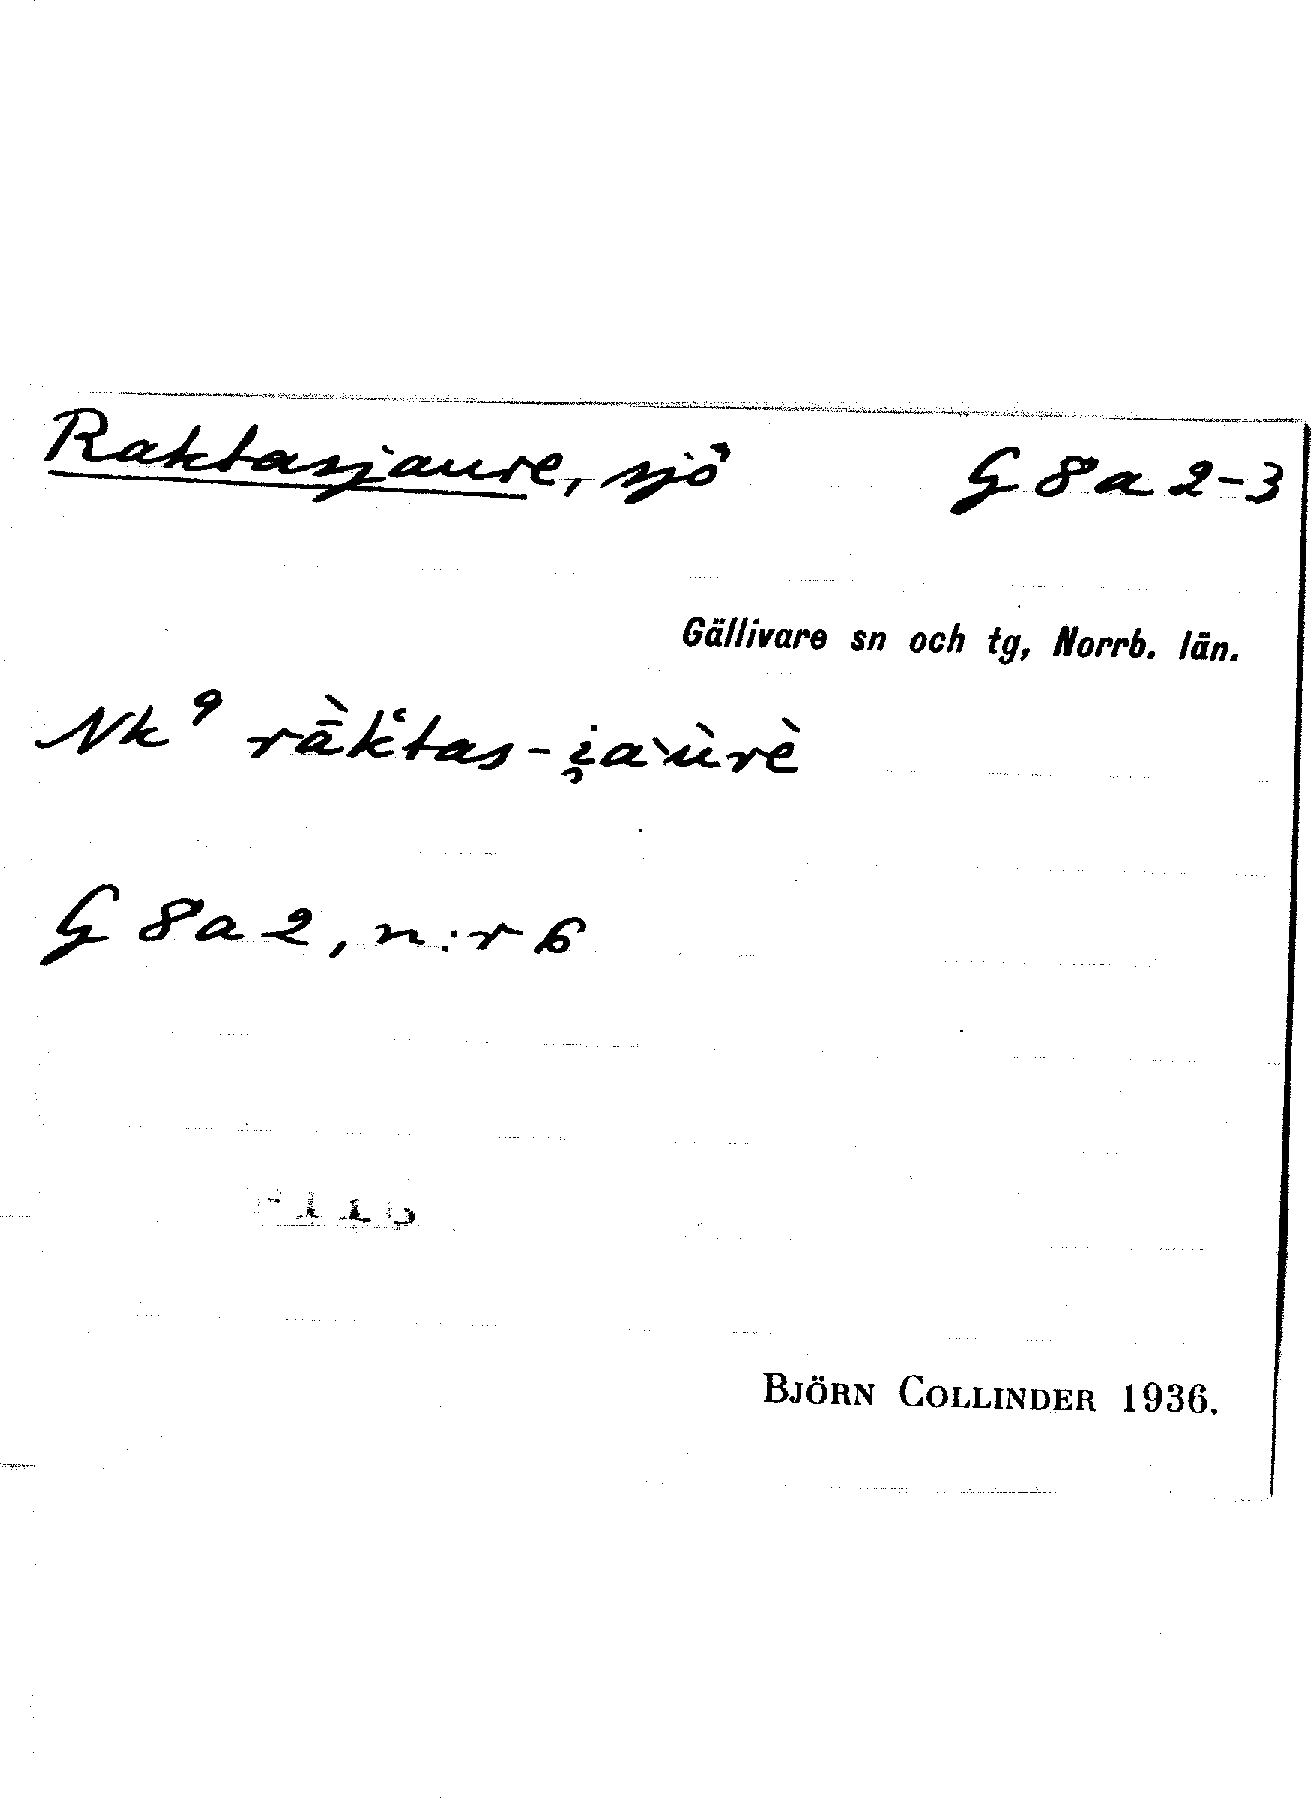 Raktasjaure, sjö G 8 a 2-3
Gällivare sn och tg, Norrb. län.
Nk⁹ rā̀k‘tas-i̯a`ùrè
G 8 a 2, n:r 6
BJÖRN COLLINDER 1936.